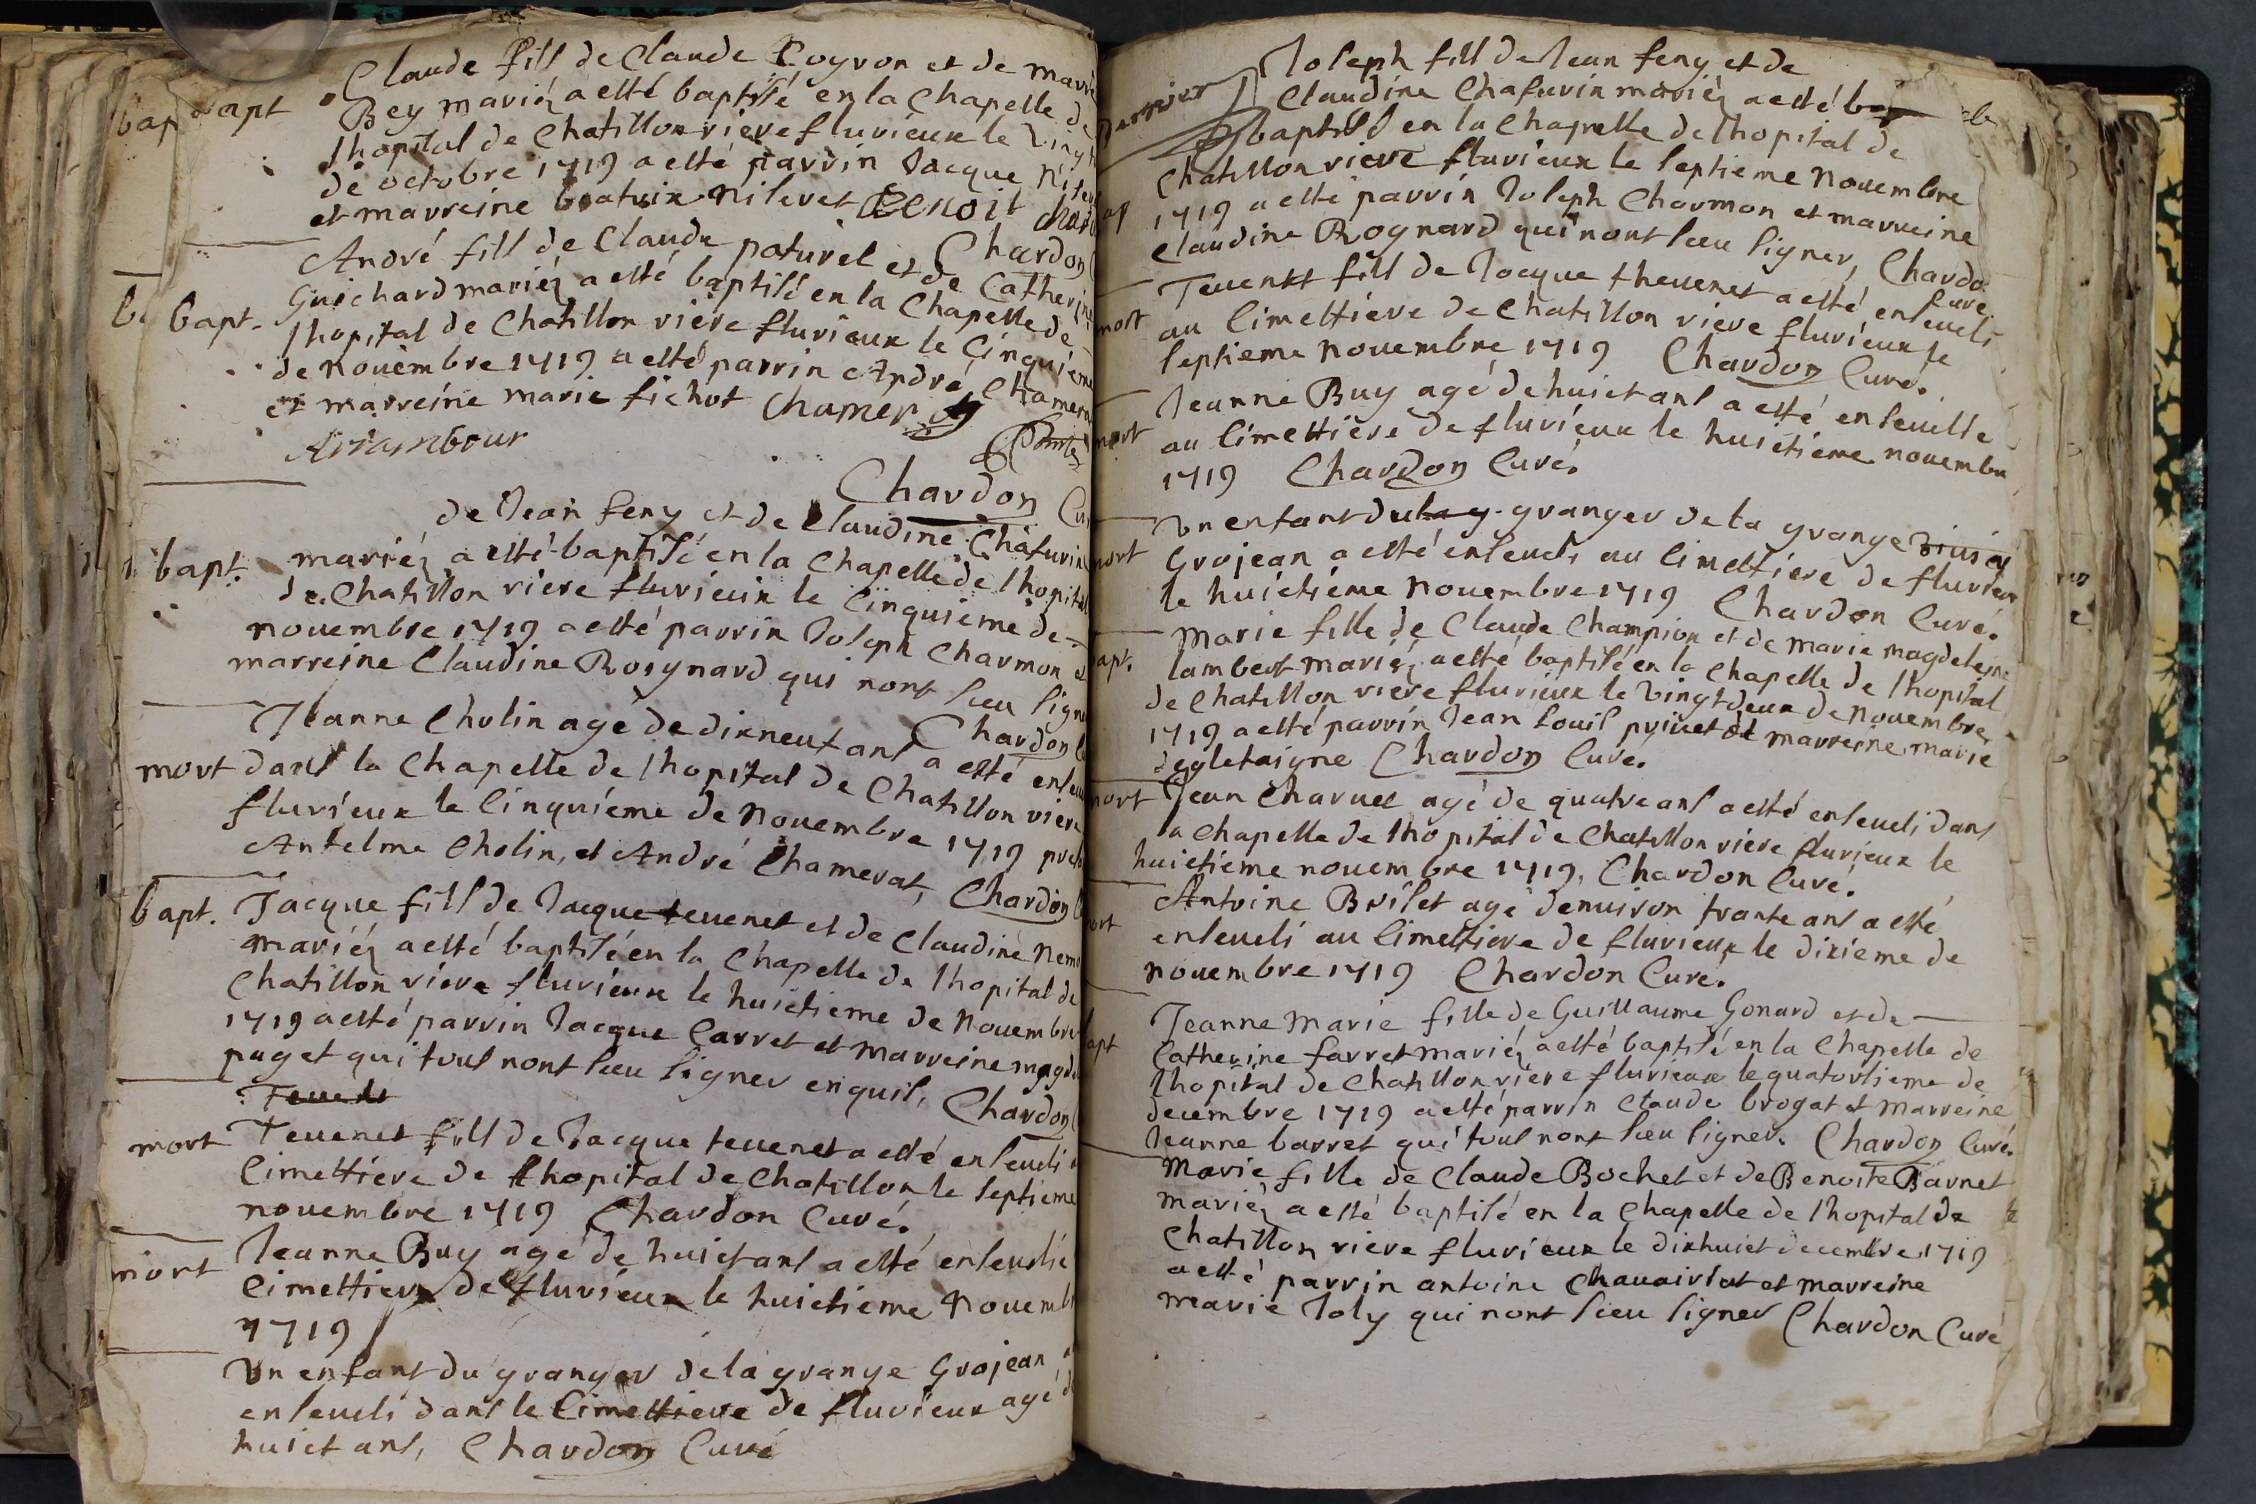 bapt Claude fill de Claude Coyron et de marie
Bey mariéz a esté baptisé en la Chapelle de
lhopital de Chatillon riere flurieux le vingt
de octobre 1719 a esté parrin Jacque
et marreine beatrix nileret Benoit
Chardon
André fill de Claude paturel et de Catherine
bapt. Guichard mariéz a esté baptisé en la Chapelle de
lhopital de Chatillon riere flurieux le Cinquiéme
de novembre 1719 a esté parrin André Chamerat
et marreine marie fichot Chamerat
Arrambour
Chardon
de Jean feny et de Claudine Chafurin
bapt. mariéz a esté baptisé en la Chapelle de lhopital
de Chatillon riere flurieux le Cinquieme de
novembre 1719 a esté parrin Joseph Charmon et
marreine Claudine Rosgnard qui nont sceu signer
Chardon
Jeanne Cholin agé de dixneuf ans a esté
mort dans la Chapelle de lhopital de Chatillon riere
flurieux le Cinquiéme de Novembre 1719
Antelme Cholin, et André Chamerat, Chardon
bapt. Jacque fill de Jacque teuenet et de Claudine
mariéz a esté baptisé en la Chapelle de lhopital de
Chatillon riere fluriéux le huictieme de Novembre
1719 a esté parrin Jacque Carret et marreine
puget qui tous nont sceu signer enquis, Chardon
Teuenet
mort Teuenet fill de Jacque teuenet a esté enseueli
Cimettiere de lhopital de Chatillon le septieme
novembre 1719 Chardon Curé.
mort Jeanne Buy agé de huict ans a esté enseuelie
Cimettiere de fluriéux le huictieme Novembre
1719
un enfant du granger de la grange Grojean
enseueli dans le Cimettiere de fluriéux agé de
huict ans, Chardon Curé
Joseph fill de Jean feny et de
Claudine Chafurin mariéz a esté
baptisé en la Chapelle de lhopital de
Chatillon riere fluriéux le septieme Novembre
1719 a esté parrin Joseph Charmon et marreine
Claudine Rognard qui nont sceu signer, Chardon
Curé
Teuenet fill de Jacque theuenet a esté enseueli
mort au Cimettiére de Chatillon riere fluriéux le
septieme Novembre 1719 Chardon Curé.
Jeanne Buy agé de huict ans a esté enseuelie
mort au Cimettiére de fluriéux le huictieme novembre
1719 Chardon Curé.
un enfant du granger de la grange
mort Grojean a esté enseueli au Cimettiere de fluriéux
le huictiéme Novembre 1719 Chardon Curé.
Marie fille de Claude Champion et de marie magdeleine
bapt. lambert mariéz a esté baptisé en la Chapelle de lhopital
de Chatillon riere fluriéux le vingtdeux de Novembre
1719 a esté parrin Jean Louis priuet et marreine marie
degletaigne Chardon Curé.
mort Jean Charuet agé de quatre ans a esté enseueli dans
la Chapelle de lhopital de Chatillon riere fluriéux le
huictieme novembre 1719, Chardon Curé.
Antoine Brilet agé denuiron trante ans a esté
mort enseueli au Cimettiere de fluriéux le dixieme de
novembre 1719 Chardon Curé.
Jeanne Marie fille de Guillaume Gonard et de
bapt Catherine farret mariéz a esté baptisé en la Chapelle de
lhopital de Chatillon riere fluriéux le quatorsieme de
decembre 1719 a esté parrin Claude brogat et marreine
Jeanne barret qui tous nont sceu signer. Chardon Curé.
Marie fille de Claude Bochet et de Benoite Barnet
mariéz a esté baptisé en la Chapelle de lhopital de
Chatillon riere fluriéux le dixhuict decembre 1719
a esté parrin antoine Chauairiat et marreine
marie Joly qui nont sceu signer Chardon Curé